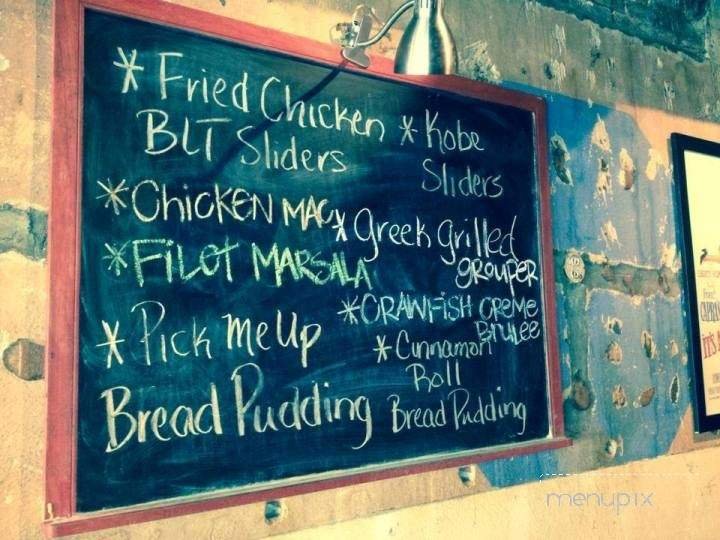 * Fried Chicken
BLT Sliders
* Chicken Mac
* Filet Marsala
* Pick Me Up
Bread Pudding
* Kobe
Sliders
* Greek Grilled
Grouper
* Crawfish Creme
Brulee
* Cinnamon
Roll
Bread Pudding
menupix